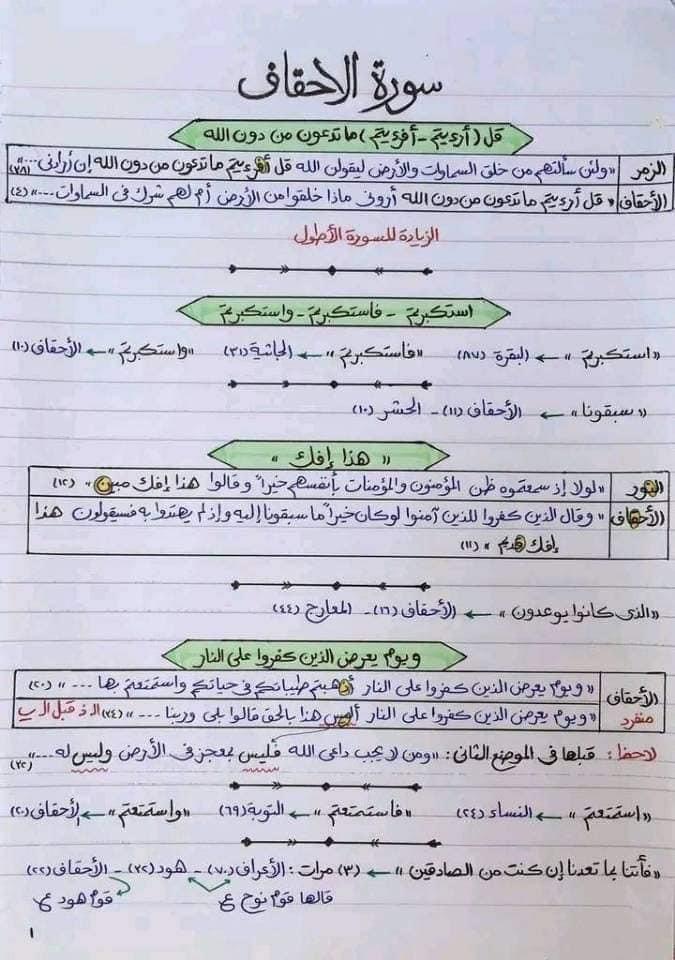 سورة الأحقاف
قل (أرءيتم - أفرءيتم) ما تدعون من دون الله
الزمر «ولئن سألتهم من خلق السماوات والأرض ليقولن الله قل أفرءيتم ما تدعون من دون الله إن أرادني ...» (٣٨)
الأحقاف «قل أرءيتم ما تدعون من دون الله أروني ماذا خلقوا من الأرض أم لهم شرك في السماوات ....» (٤)
الزيادة للسورة الأطول
استكبرتم - فاستكبرتم - واستكبرتم
«استكبرتم» ← البقرة (٨٧) «فاستكبرتم» ← الجاثية (٣١) «واستكبرتم» ← الأحقاف (١٠)
«سبقونا» ← الأحقاف (١١) - الحشر (١٠)
«هذا إفك»
النور «لولا إذ سمعتموه ظن المؤمنون والمؤمنات بأنفسهم خيراً وقالوا هذا إفك مبين» (١٢)
الأحقاف «وقال الذين كفروا للذين آمنوا لو كان خيراً ما سبقونا إليه وإذ لم يهتدوا به فسيقولون هذا
إفك قديم» (١١)
«الذي كانوا يوعدون» ← الأحقاف (١٦) - المعارج (٤٤)
ويوم يعرض الذين كفروا على النار
الأحقاف «ويوم يعرض الذين كفروا على النار أذهبتم طيباتكم في حياتكم واستمتعتم بها ...» (٢٠)
منفرد «ويوم يعرض الذين كفروا على النار أليس هذا بالحق قالوا بلى وربنا ....» (٣٤) الذ قبل ال
لاحظ: قبلها في الموضع الثاني: «ومن لا يجب داعي الله فليس بمعجز في الأرض وليس له ...» (٣٢)
«استمتعتم» ← النساء (٢٤) «فاستمتعتم» ← التوبة (٦٩) «واستمتعتم» ← الأحقاف (٢٠)
«فأتنا بما تعدنا إن كنت من الصادقين» ← (٣) مرات: الأعراف (٧٠) - هود (٣٢) - الأحقاف (٢٢)
قالها قوم نوح ع قوم هود ع
١